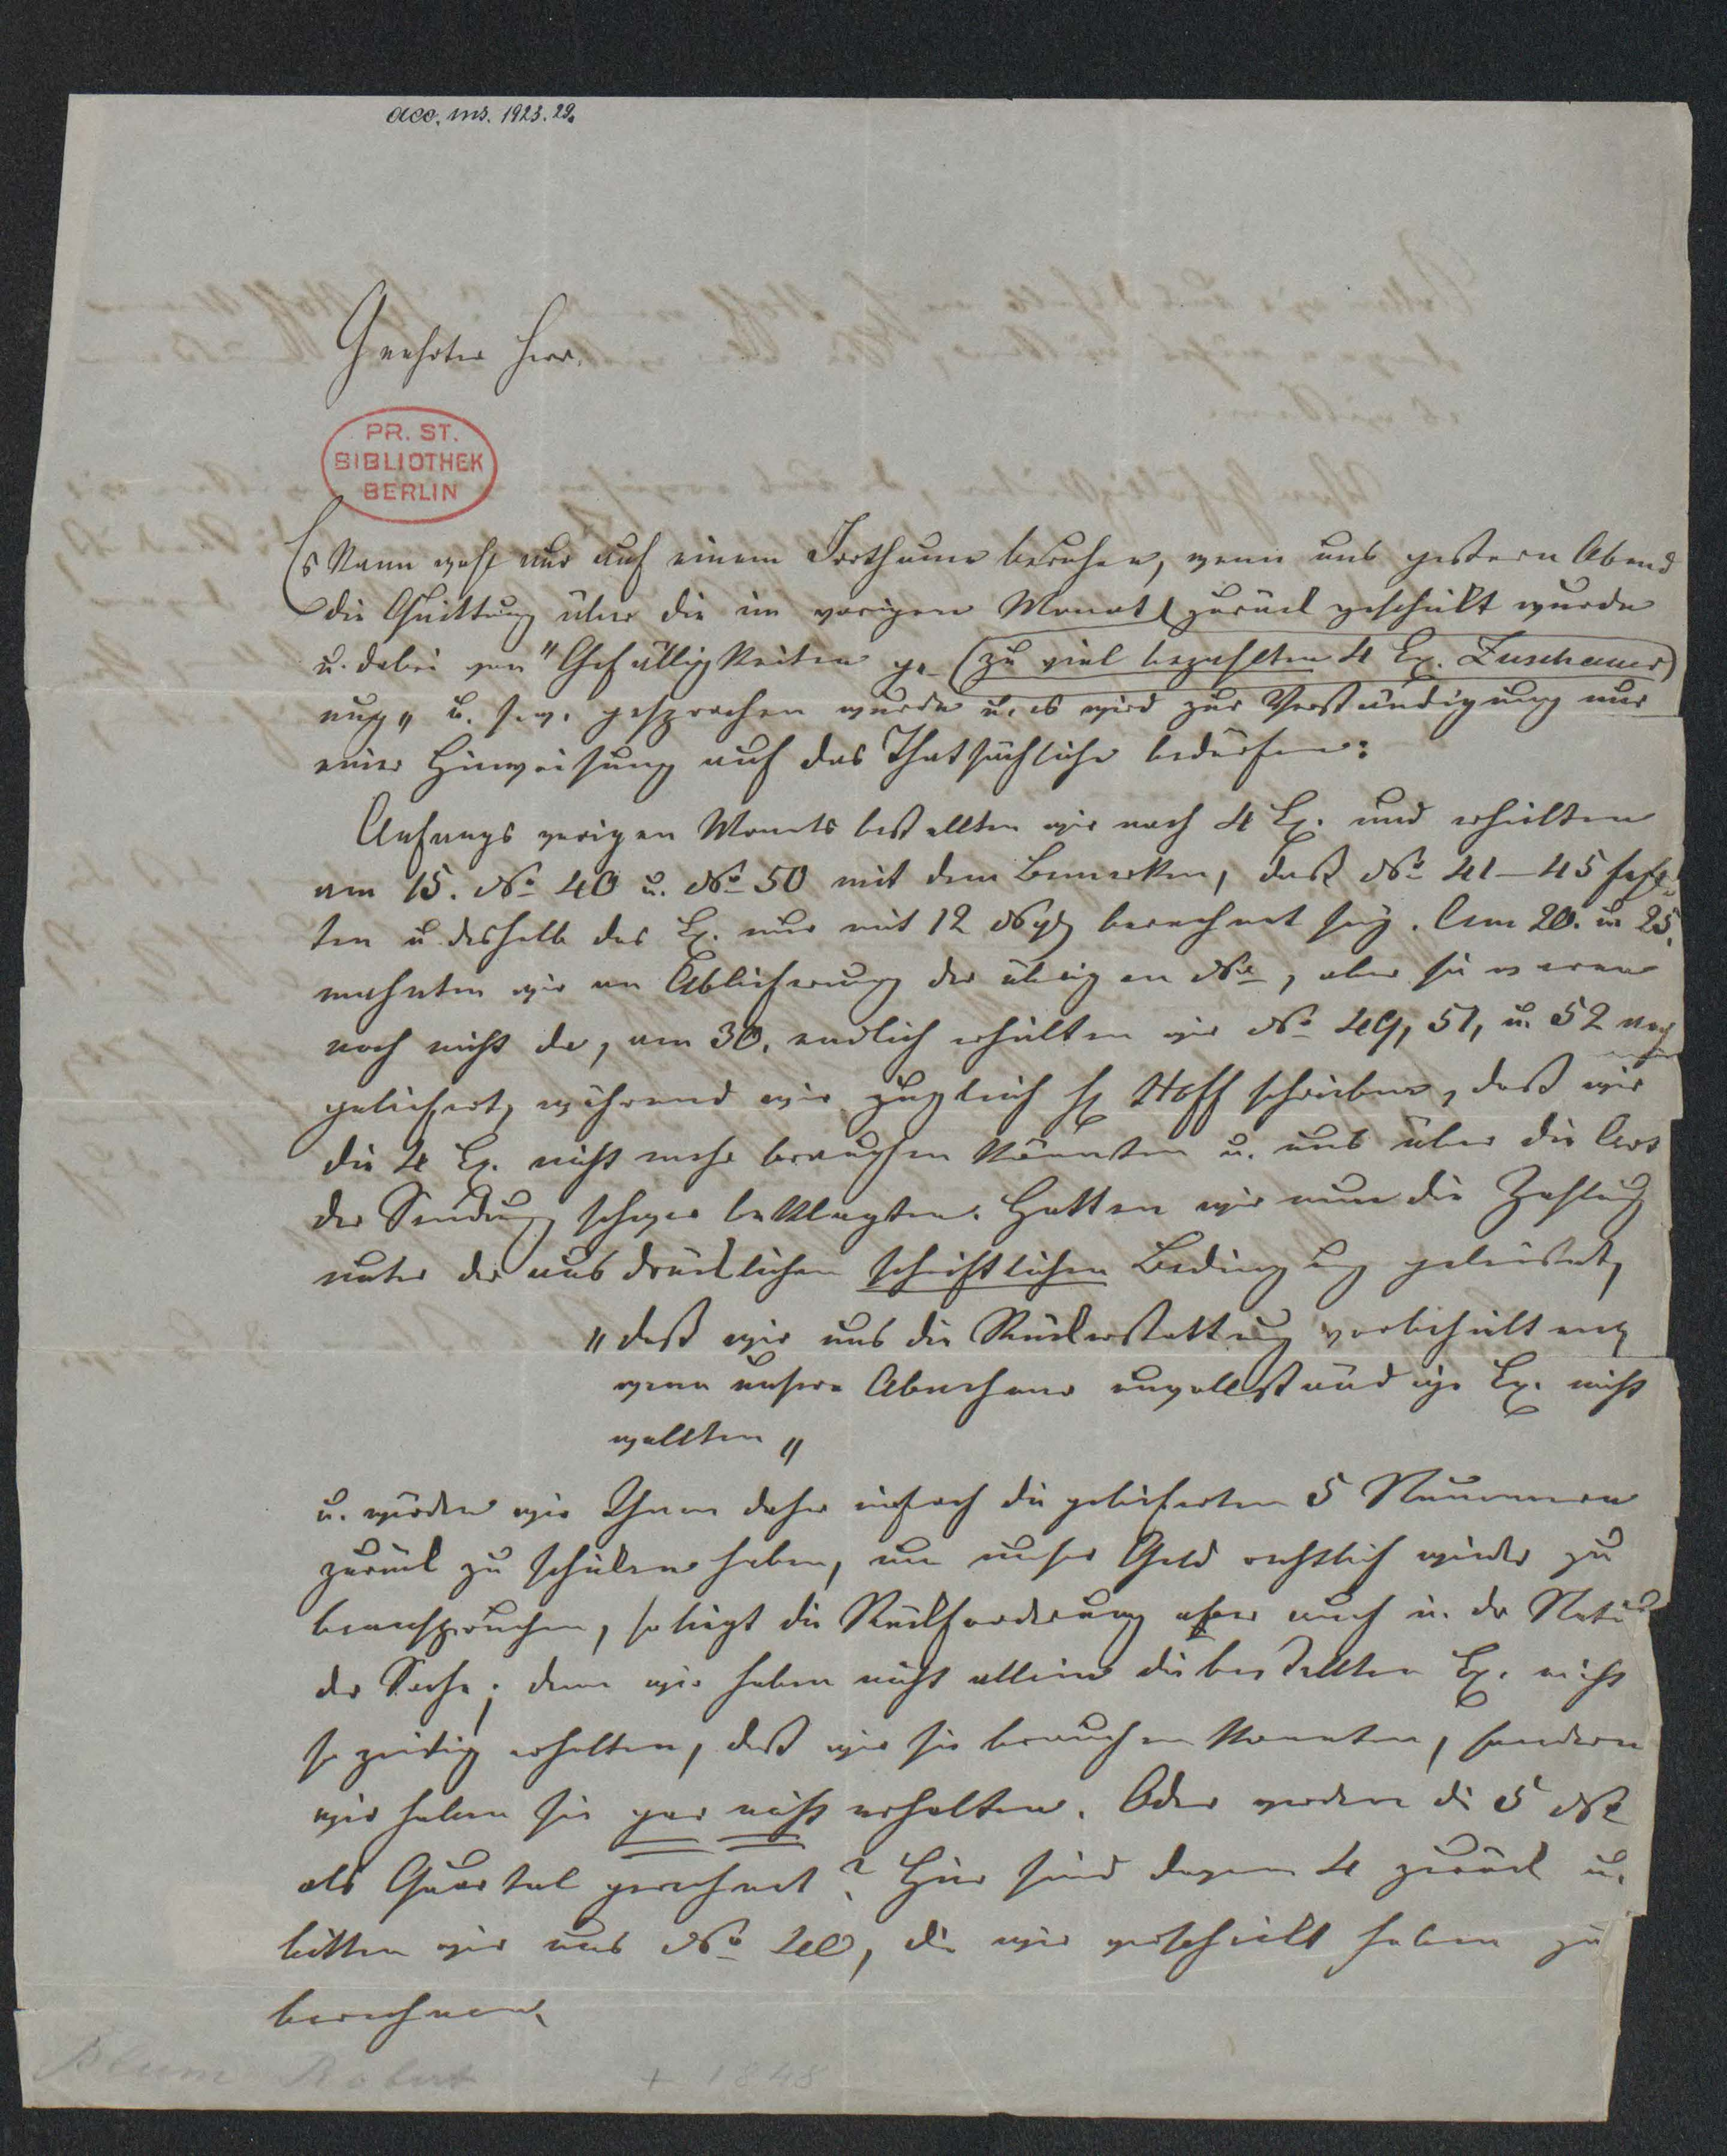 acc. ms. 1923. 29.
Geehrter Herr.
PR. ST.
BIBLIOTHEK
BERLIN
Es kann wohl nur auf einem Irrthume beruhen, wenn uns gestern Abend
die Quittung über die im vorigen Monat zurück geschickt wurde
u. dabei von "Gefälligkeiten (zu viel bezahlten 4 Ex. Zuschauer)
u. s. w. gesprochen wurde u. es wird zur Verständigung nur
einer Hinweisung auf das Thatsächliche bedürfen:
Anfangs vorigen Monats bestellten wir noch 4 Ex. und erhielten
am 15. No 40 u. No 50 mit dem Bemerken, daß No 41–45 fehl-
ten u deshalb das Ex. nur mit 12 Ngr berechnet sey. Am 20. u 25.
mahnten wir um Ablieferung der übrigen No, aber sie waren
noch nicht da, am 30. endlich erhielten wir No 49, 51, u. 52 nach
geliefert, während wir zugleich H Hoff schrieben, daß wir
die 4 Ex. nicht mehr brauchen könnten u. uns über die Art
der Sendung schwer beklagten. Hatten wir nun die Zahlung
unter der ausdrücklichen schriftlichen Bedingung geleistet,
"daß wir uns die Rückerstattung vorbehielten,
wenn unsere Abnehmer unvollständige Ex. nicht
wollten"
u. würden wir Ihnen daher einfach die gelieferten 5 Nummern
zurück zu schicken haben, um unser Geld rechtlich wieder zu
beanspruchen, so liegt die Rückforderung aber auch in der Natur
der Sache; denn wir haben nicht allein die bestellten Ex. nicht
so zeitig erhalten, daß wir sie brauchen konnten, sondern
wir haben sie gar nicht erhalten. Oder werden die 5 No
als Quartal gerechnet? Hier sind davon 4 zurück u.
bitten wir uns No 40, die wir verschickt haben zu
berechnen.
Blum Robert + 1848